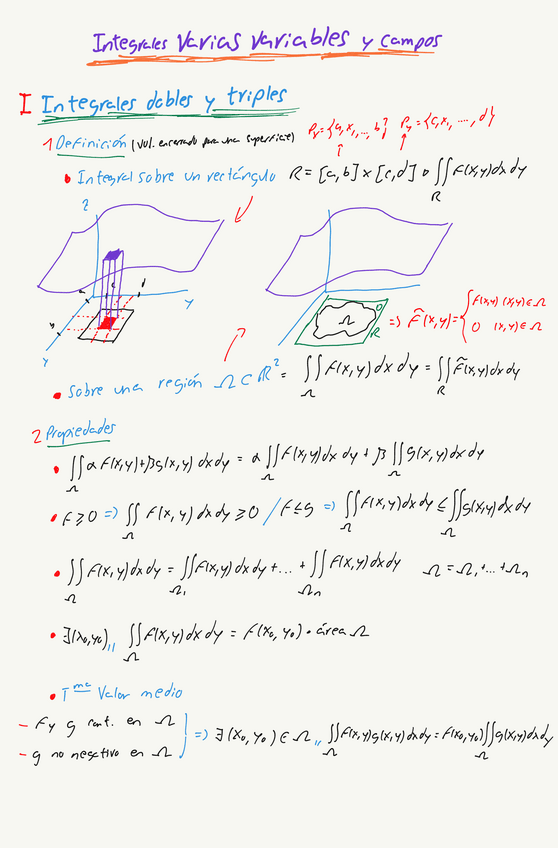 Integrales Varias variables y campos
I Integrales dobles y triples
1 Definición (vol. encerrado para una superficie) Px={a, x1, ..., b} Py={c, x1, ..., d}
• Integral sobre un rectángulo R = [a,b] x [c,d] ∬_R F(x,y) dx dy
z
y
x
Ω O R => F̃(x,y) = { F(x,y) (x,y)∈Ω
0 (x,y)∈Ω
• Sobre una región Ω ⊂ R² = ∬_Ω F(x,y) dx dy = ∬_R F̃(x,y) dx dy
2 Propiedades
• ∬_Ω αF(x,y)+βg(x,y) dx dy = α ∬_Ω F(x,y) dx dy + β ∬_Ω g(x,y) dx dy
• F ≥ 0 => ∬_Ω F(x,y) dx dy ≥ 0 / F ≤ g => ∬_Ω F(x,y) dx dy ≤ ∬_Ω g(x,y) dx dy
• ∬_Ω F(x,y) dx dy = ∬_Ω1 F(x,y) dx dy + ... + ∬_Ωn F(x,y) dx dy Ω = Ω1 + ... + Ωn
• ∃(x0,y0) // ∬_Ω F(x,y) dx dy = F(x0, y0) • área Ω
• Tma Valor medio
- F y g cont. en Ω
- g no negativo en Ω
=> ∃ (x0, y0) ∈ Ω // ∬_Ω F(x,y)g(x,y) dx dy = F(x0,y0) ∬_Ω g(x,y) dx dy